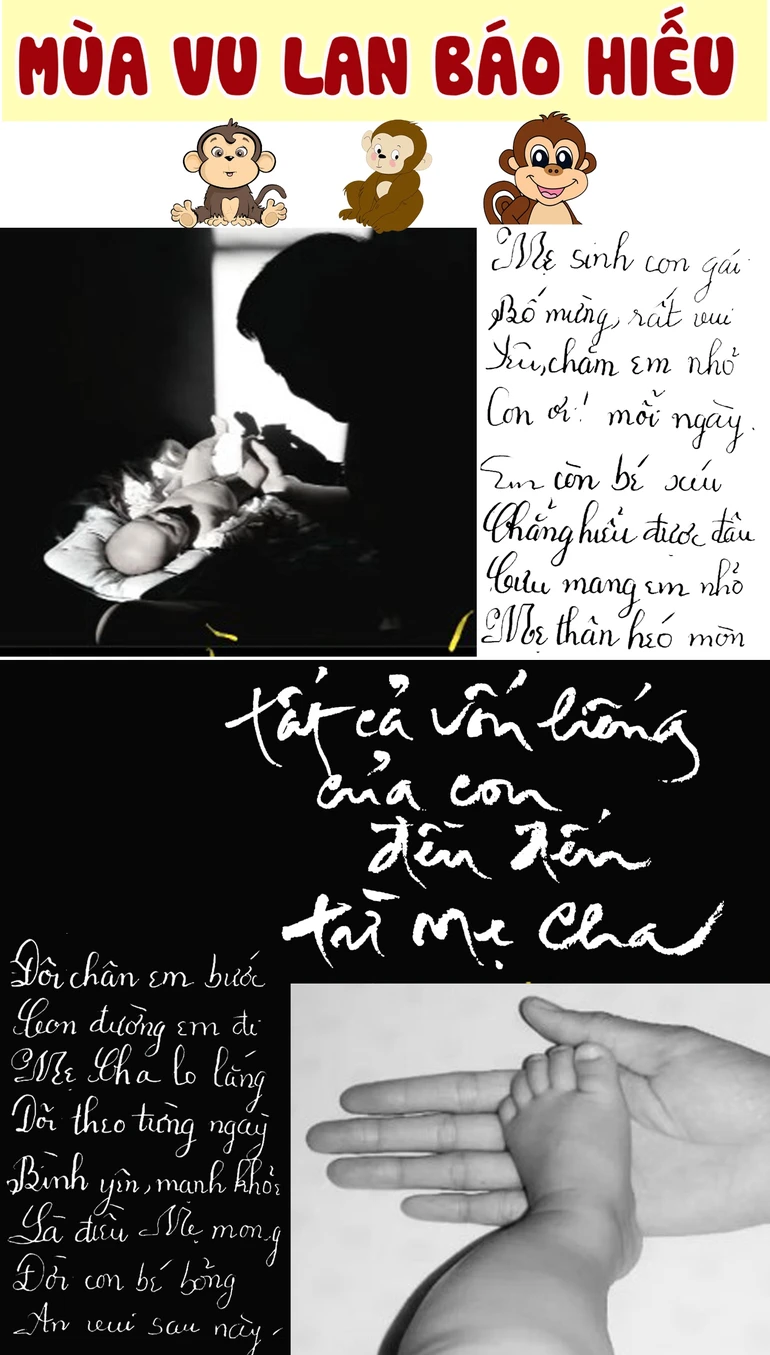 MÙA VU LAN BÁO HIẾU
Mẹ sinh con gái
Bố mừng, rất vui
Yêu, chăm em nhỏ
Con ơi! mỗi ngày.
Em còn bé xíu
Chẳng hiểu được đâu
Cưu mang em nhỏ
Mẹ thân héo mòn
tất cả vốn liếng
của con
đều đến
từ Mẹ Cha
Đôi chân em bước
Con đường em đi
Mẹ Cha lo lắng
Dõi theo từng ngày
Bình yên, mạnh khỏe
Là điều Mẹ mong
Đời con bé bỏng
An vui sau này.